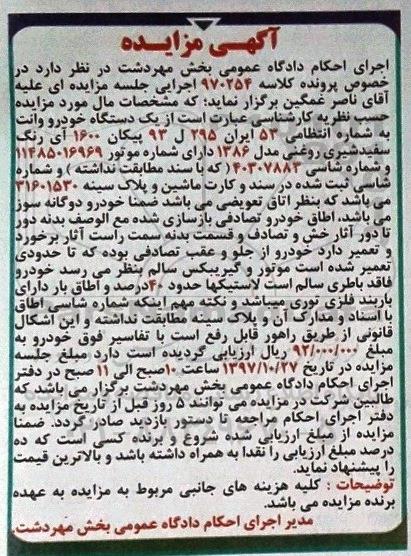 آگهی مزایده
اجرای احکام دادگاه عمومی بخش مهردشت در نظر دارد در
خصوص پرونده کلاسه ۹۷۰۲۵۴ اجرایی جلسه مزایده ای علیه
آقای ناصر غمگین برگزار نماید؛ که مشخصات مال مورد مزایده
حسب نظریه کارشناسی عبارت است از یک دستگاه خودرو وانت
به شماره انتظامی ۵۳ ایران ۲۹۵ ل ۹۳ پیکان ۱۶۰۰ آی رنگ
سفیدشیری روغنی مدل ۱۳۸۶ دارای شماره موتور ۱۱۴۸۵۰۱۶۹۶۹
و شماره شاسی ۴۰۳۰۷۸۸۳ ( که با سند مطابقت نداشته ) و شماره
شاسی ثبت شده در سند و کارت ماشین و پلاک سینه ۳۱۶۰۱۵۳۰
می باشد که بنظر اتاق تعویضی می باشد ضمنا خودرو دوگانه سوز
می باشد، اطاق خودرو تصادفی بازسازی شده مع الوصف بدنه دور
تا دور آثار خش و تصادف و قسمت بدنه سمت راست آثار برخورد
و تعمیر دارد خودرو از جلو و عقب تصادفی بوده که تا حدودی
تعمیر شده است موتور و گیربکس سالم بنظر می رسد خودرو
فاقد باطری سالم است لاستیکها حدود ۴۰درصد و اطاق بار دارای
باربند فلزی توری میباشد و نکته مهم اینکه شماره شاسی اطاق
با اسناد و مدارک آن و پلاک سینه مطابقت نداشته و این اشکال
قانونی از طریق راهور قابل رفع است با تفاسیر فوق خودرو به
مبلغ ۹۲/۰۰۰/۰۰۰ ریال ارزیابی گردیده است دارد مبلغ جلسه
مزایده در تاریخ ۱۳۹۷/۱۰/۲۷ ساعت ۱۰صبح الی ۱۱ صبح در دفتر
اجرای احکام دادگاه عمومی بخش مهردشت برگزار می باشد که
طالبین شرکت در مزایده می توانند ۵ روز قبل از تاریخ مزایده به
دفتر اجرای احکام مراجعه تا دستور بازدید صادر گردد. ضمنا
مزایده از مبلغ ارزیابی شده شروع و برنده کسی است که ده
درصد مبلغ ارزیابی را نقدا به همراه داشته باشد و بالاترین قیمت
را پیشنهاد نماید.
توضیحات : کلیه هزینه های جانبی مربوط به مزایده به عهده
برنده مزایده می باشد.
مدیر اجرای احکام دادگاه عمومی بخش مهردشت